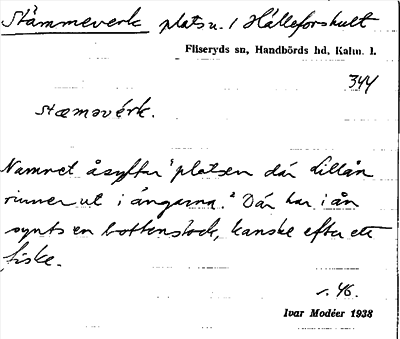 Stämmeverk platsn. / Hälleforshult
Fliseryds sn, Handbörds hd, Kalm. l.
344
stæməvérk.
Namnet åsyftar "platsen där Lillån
rinner ut i ängarna." Där har i ån
synts en bottenstock, kanske efter ett
fiske.
s. 46.
Ivar Modéer 1938